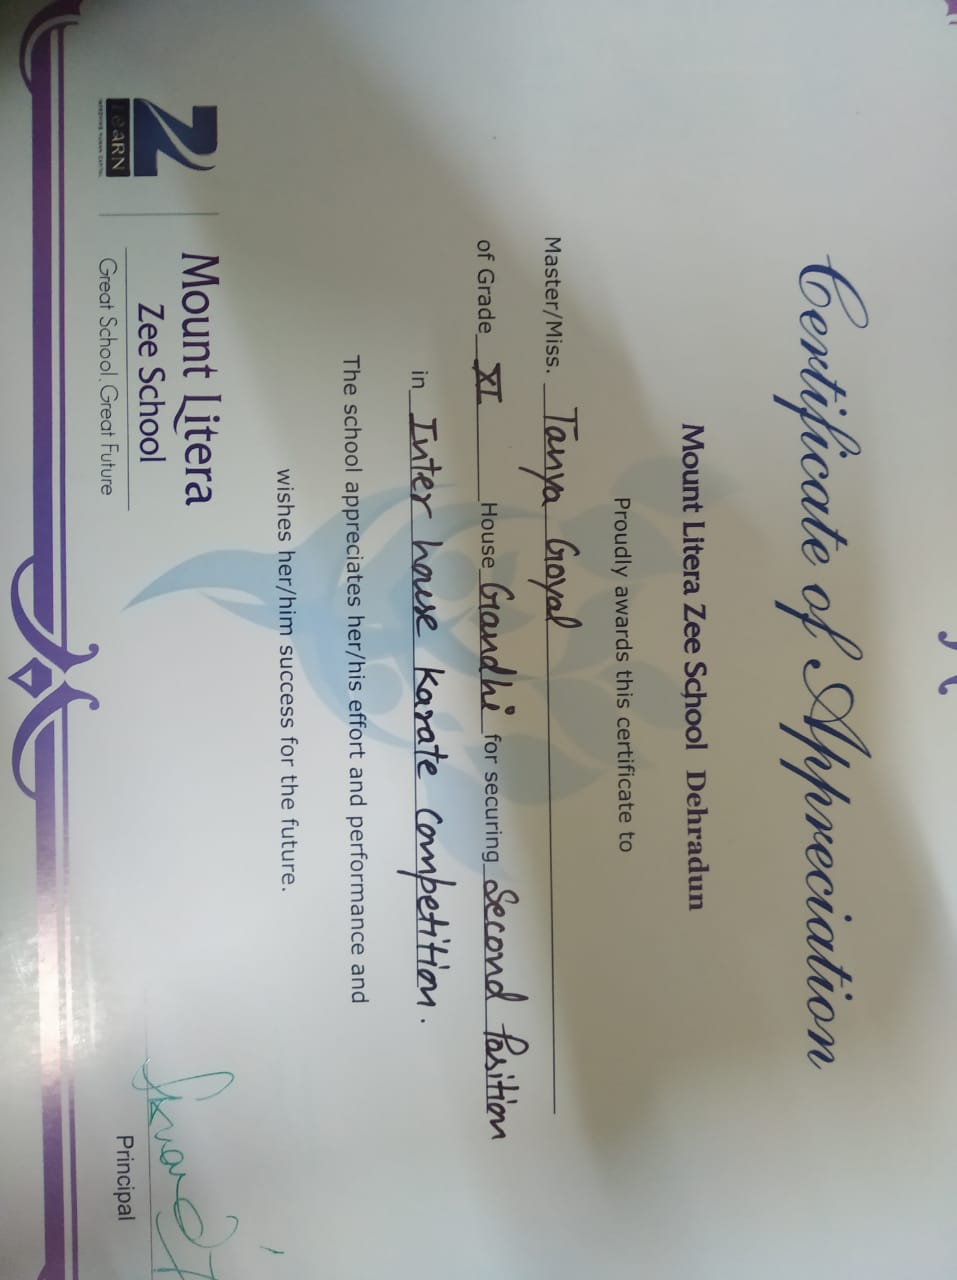 Certificate of Appreciation
Mount Litera Zee School Dehradun
Proudly awards this certificate to
Master/Miss. Tanya Goyal
of Grade XI House Gandhi for securing Second Position
in Inter house Karate Competition.
The school appreciates her/his effort and performance and
wishes her/him success for the future.
Mount Litera
Zee School
Great School, Great Future
Z
LEARN
IMPROVING HUMAN CAPITAL
Principal